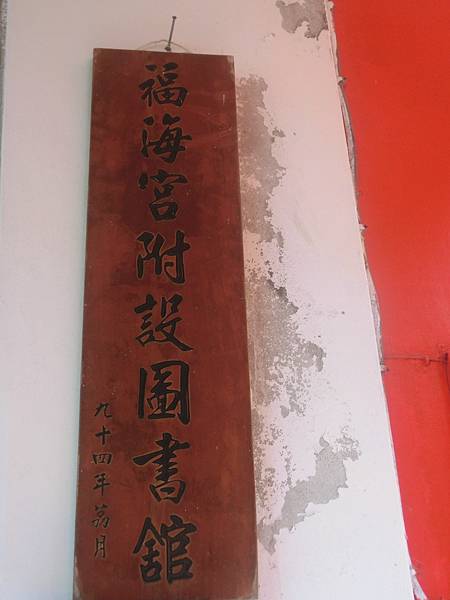 福海宮附設圖書舘
九十四年荔月